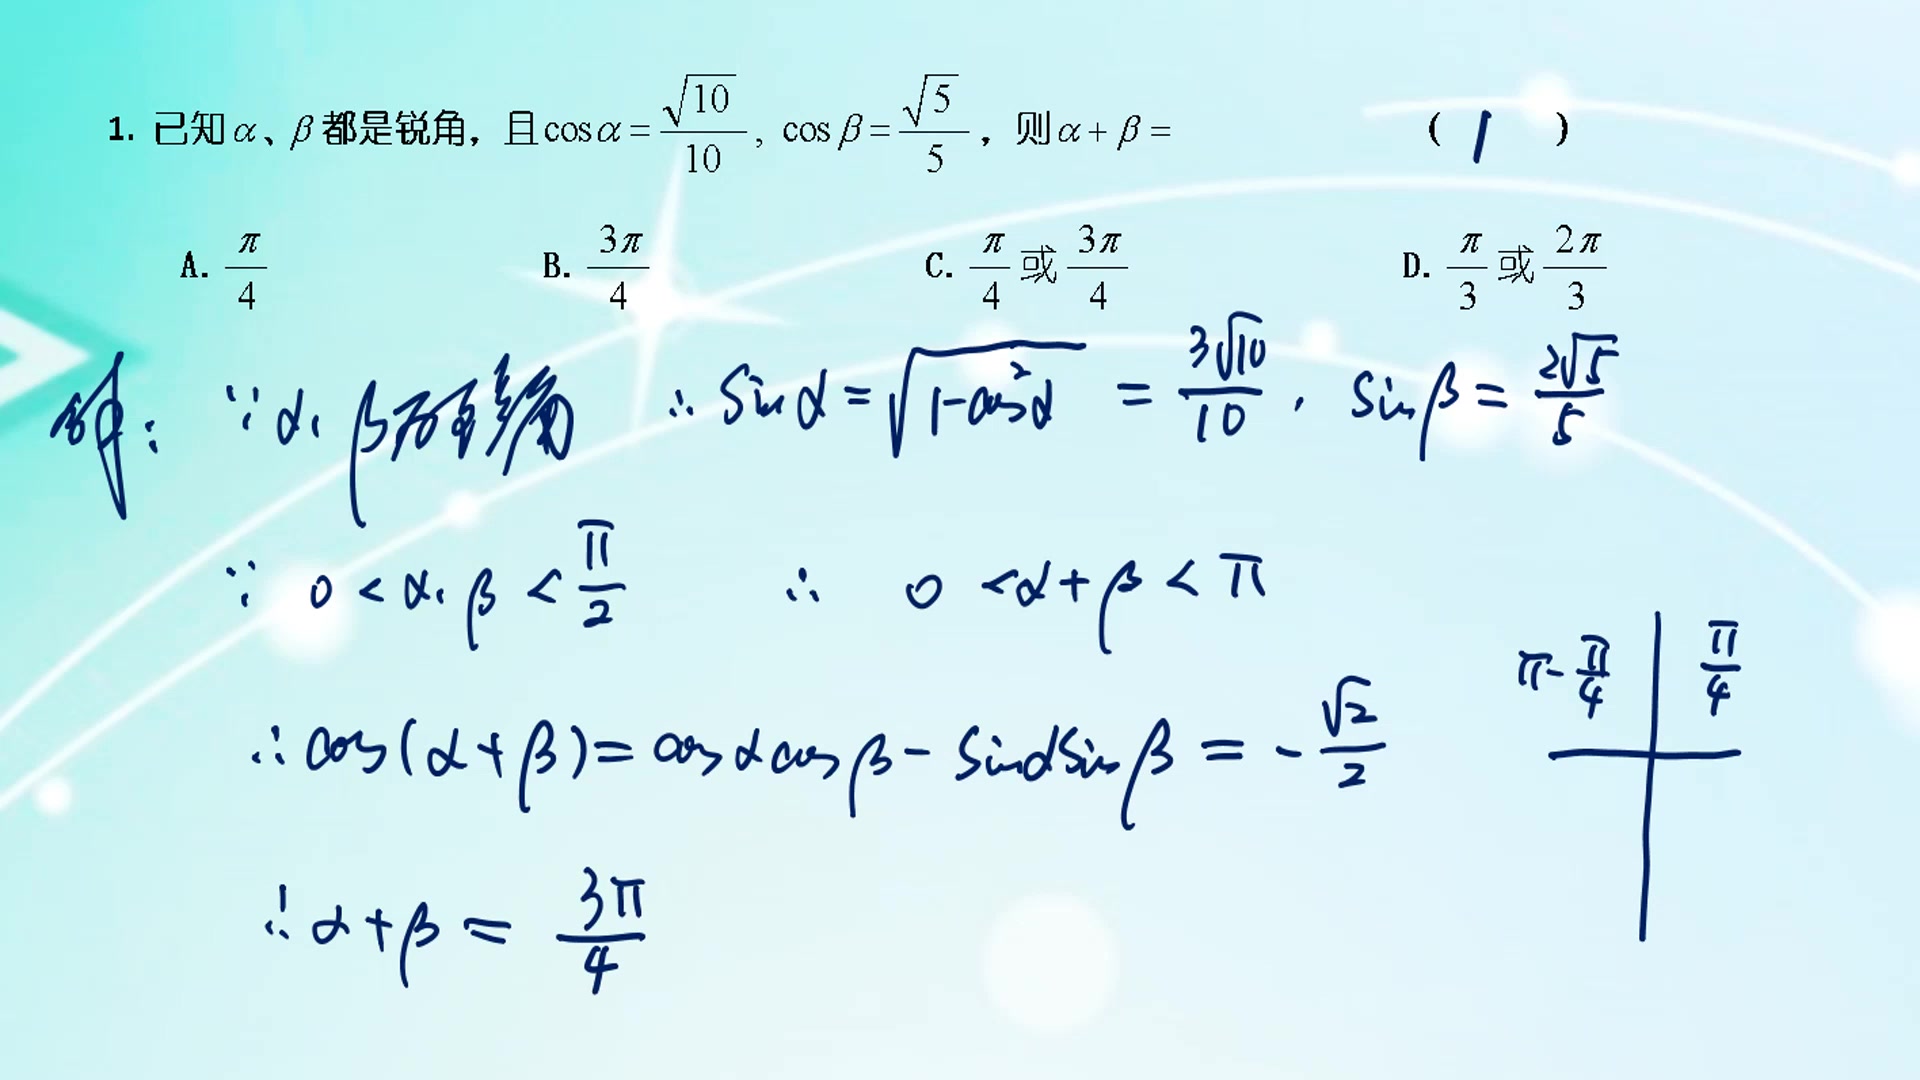 1. 已知α、β都是锐角，且cosα=√10/10, cosβ=√5/5，则α+β= ( 1 )
A. π/4 B. 3π/4 C. π/4或3π/4 D. π/3或2π/3
解: ∵α, β为锐角 ∴ Sinα=√(1-cos²α) = 3√10/10, Sinβ=2√5/5
∵ 0<α,β<π/2 ∴ 0<α+β<π
π-π/4 π/4
∴cos(α+β)=cosαcosβ-SinαSinβ=-√2/2
∴α+β=3π/4